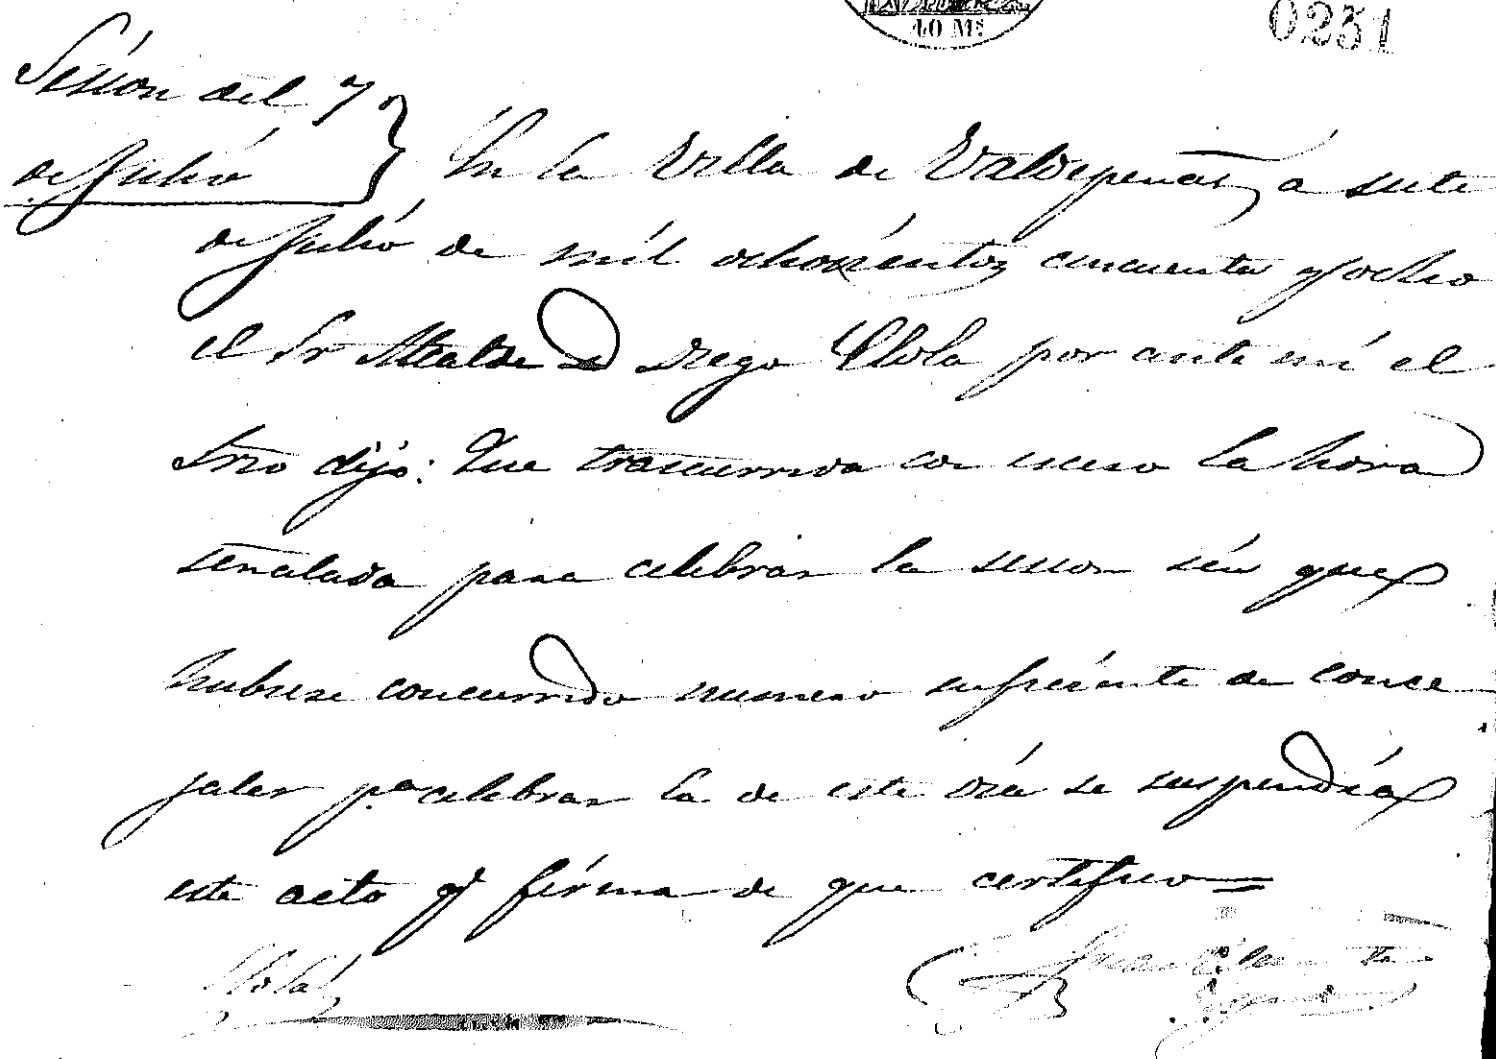 40 Ms
0231
Sesion del 7
de Julio
En la Villa de Valdepeñas, á siete
de Julio de mil ochocientos cincuenta y ocho
el Sr Alcalde D Diego Llola por ante mi el
Srio dijo: Que trascurrida con esceso la hora
señalada para celebrar la sesion sin que
hubiese concurrido numero suficiente de conce
jales pa celebrar la de este dia se suspendia
este acto qe firma de que certifico=
Llola
Juan